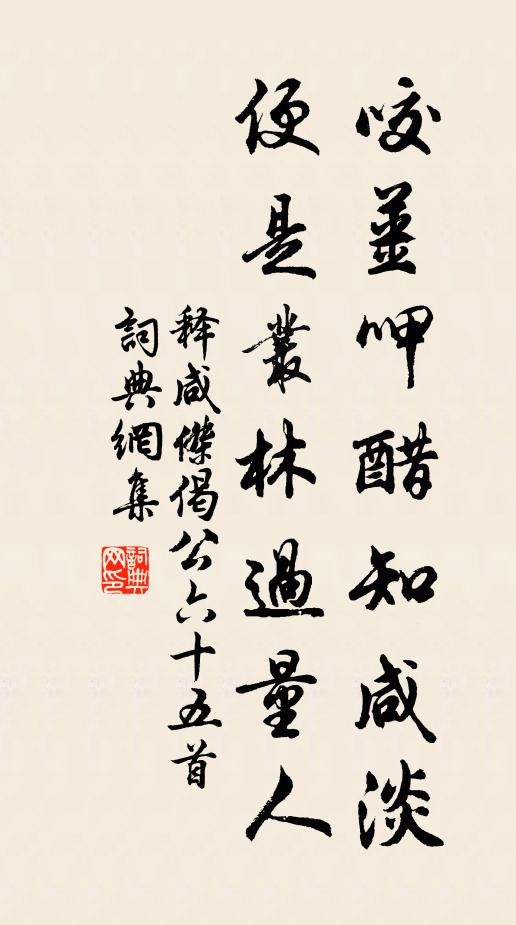 咬薑呷醋知咸淡
便是叢林過量人
释咸傑偈公六十五首
詞典網集
詞典网印